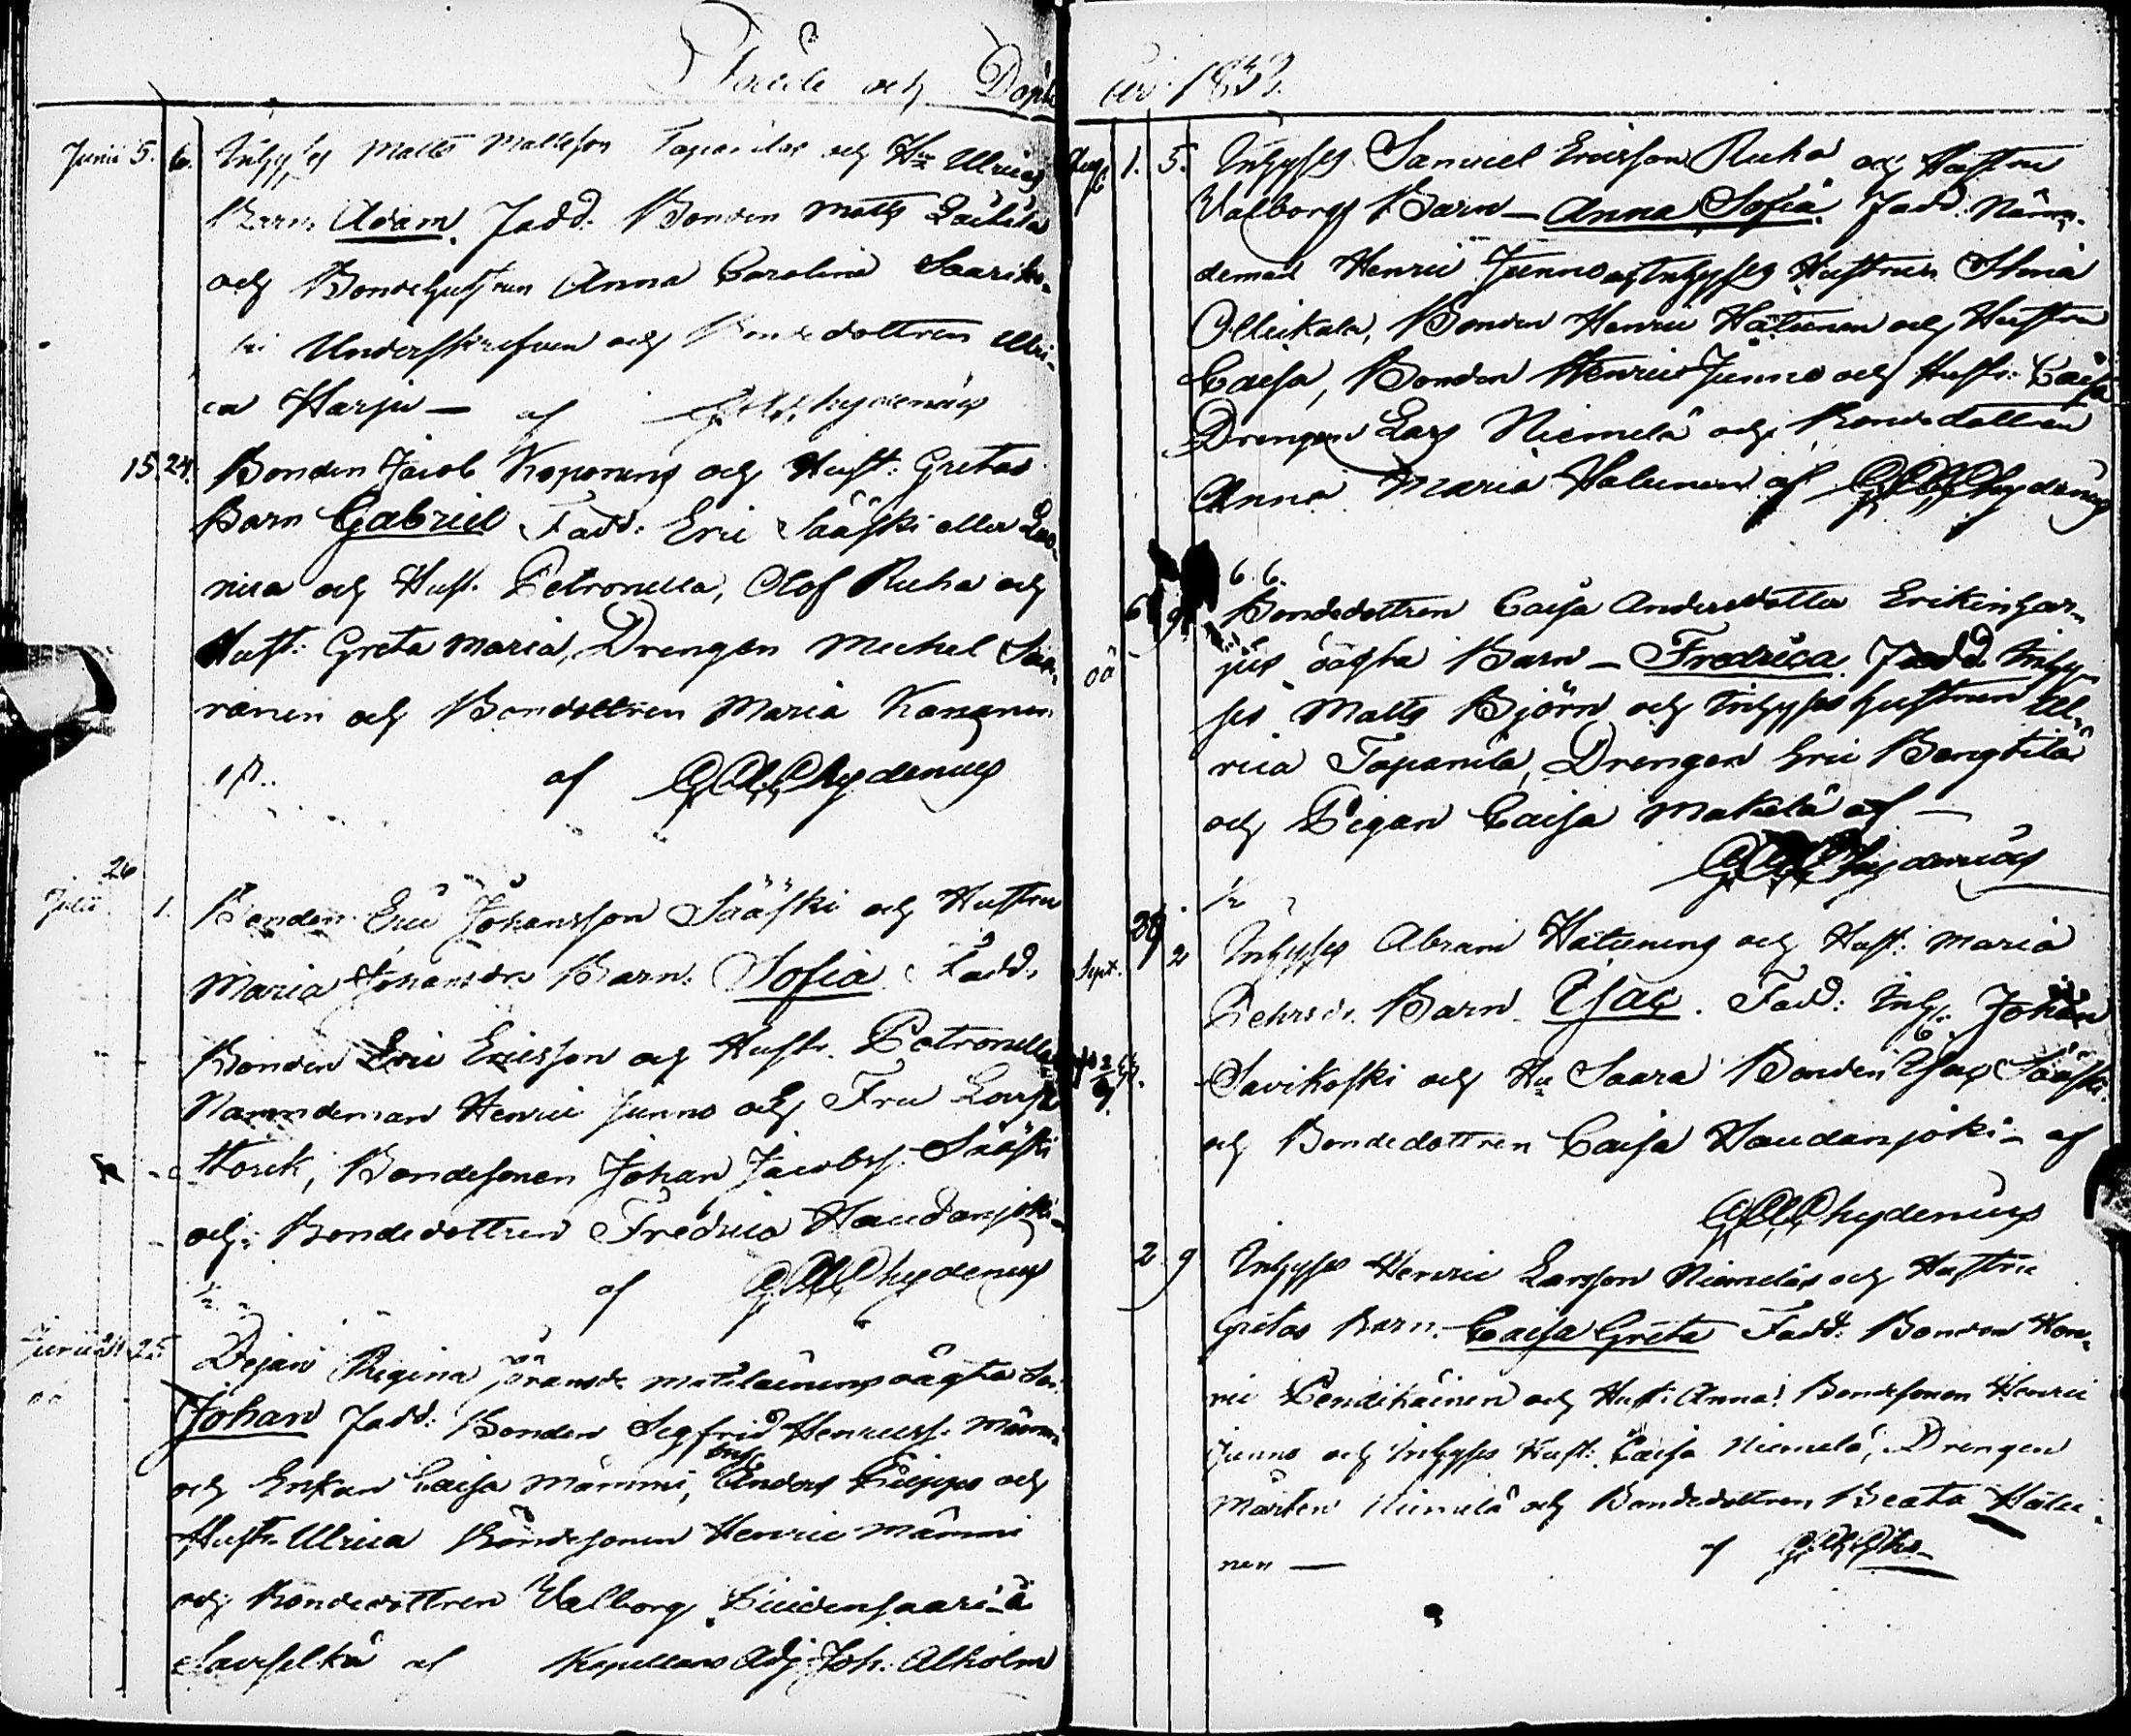 Födde och Döpte
Junii 5. 6. Inhyses Matts Mattsson Tapanilas och Hu Ulricas
Barn. Adam. Fadd: Bonden Matts
och Bondehustrun Anna Carolina Saariko-
ski Underskrifven och Bondedottren Ulri-
ca Harju — af Chydenius
15. 24. Bonden Jacob Koponens och Hust: Gretas
Barn Gabriel Fadd: Eric Sääski eller
och Hust. Petronella, Olof Ruha och
Hust: Greta Maria, Drengen Michel Saa-
ranen och Bondottren Maria Kananen
af Chydenius
26
Julii 1. Bonden Eric Johansson Sääski och Hustru
Maria Johansdr Barn. Sofia. Fadd.
Bonden Eric Ericsson och Hustr. Petronella
Nämndeman Henric Junno och Fru Lovisa
Bondesonen Johan Jacobss. Sääski
och Bondedottren Fredrica Haudanjoki
af Chydenius
Junii 21. 25. Dejan Regina Göransdr Matilainens oägta Son
oä Johan Fadd: Bonden Segfrid Henricss. Mämmi
och Enkan Caisa Mämmi, Inh. Anders Piippo och
Hustr. Ulrica Bondesonen Henric Mämmi
och Bondedottren Valborg
af Kapellans Adj. Joh. Alholm
år 1853.
Aug 1. 5. Inhyses Samuel Ericsson Ruha och Hustru
Valborgs Barn — Anna Sofia. Fadd: Nämn-
deman Henric Junno och Inhyses Hustrun Stina
Ollikala, Bonden Henric Hätunen och Hustru
Caisa, Bonden Henric Junno och Hustr: Caisa
Drengen Lars Niemelä och Bondedottren
Anna Maria Halunen af Chydenius
6. 6.
6 9 Bondedottren Caisa Andersdotter Erikinhar-
oä jus oägta Barn — Fredrica. Fadd. Inhy-
ses Matts Björn och Inhyses hustrun Ul-
rica Tapanila, Drengen Eric Bengtilä
och Pigan Caisa Makelä af —
Chydenius
29
Sept. 2 Inhyses Abram Hätunens och Hust: Maria
Pehrsdr. Barn. Isac. Fadd: Inh: Johan
Savikoski och Hu Saara Bonden Isac Sääski
och Bondedottren Caisa Haudanjoki — af
Chydenius
2 9 Inhyses Henric Larsson Niemeläs och Hustru
Gretas Barn. Caisa Greta Fadd: Bonden Hen-
ric Pendikäinen och Hust: Anna, Bondesonen Henric
Junno och Inhyses Hust: Caisa Niemelä, Drengen
Mårten Niemelä och Bondedottren Beata Hätu-
nen — af